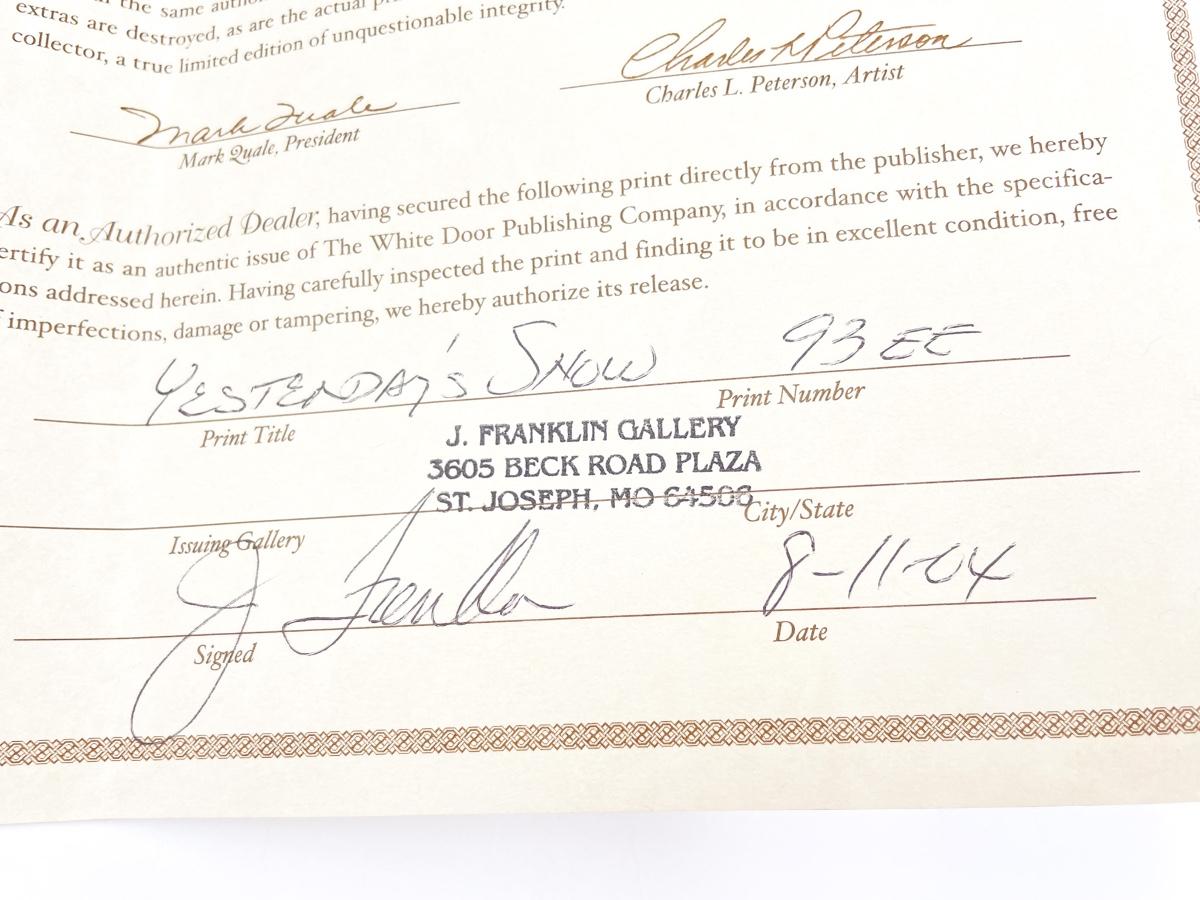 the same
extras are destroyed, as are the actual
collector, a true limited edition of unquestionable integrity.
Charles L Peterson
Charles L. Peterson, Artist
Mark Quale
Mark Quale, President
As an Authorized Dealer, having secured the following print directly from the publisher, we hereby
ertify it as an authentic issue of The White Door Publishing Company, in accordance with the specifica-
ons addressed herein. Having carefully inspected the print and finding it to be in excellent condition, free
imperfections, damage or tampering, we hereby authorize its release.
YESTERDAY'S SNOW 93 EE
Print Title Print Number
J. FRANKLIN GALLERY
3605 BECK ROAD PLAZA
ST. JOSEPH, MO 64506
Issuing Gallery City/State
J Franklin 8-11-04
Signed Date